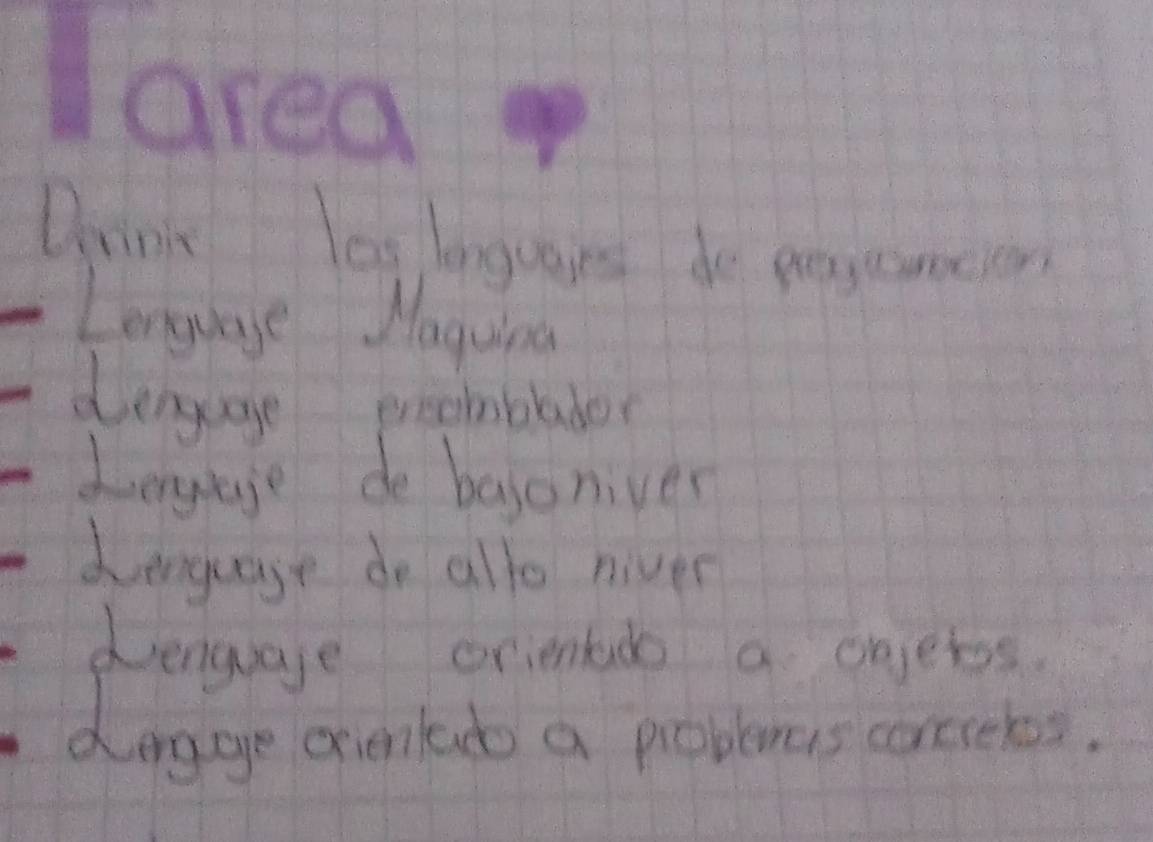 Tarea
Definir los lenguajes de programacion
- Lenguaje Maquina
- Lenguaje ensamblador
- Lenguaje de bajo niver
- Lenguaje de alto niver
- Lenguaje orientado a onjetos.
- Lenguaje orientado a problemas concretos.